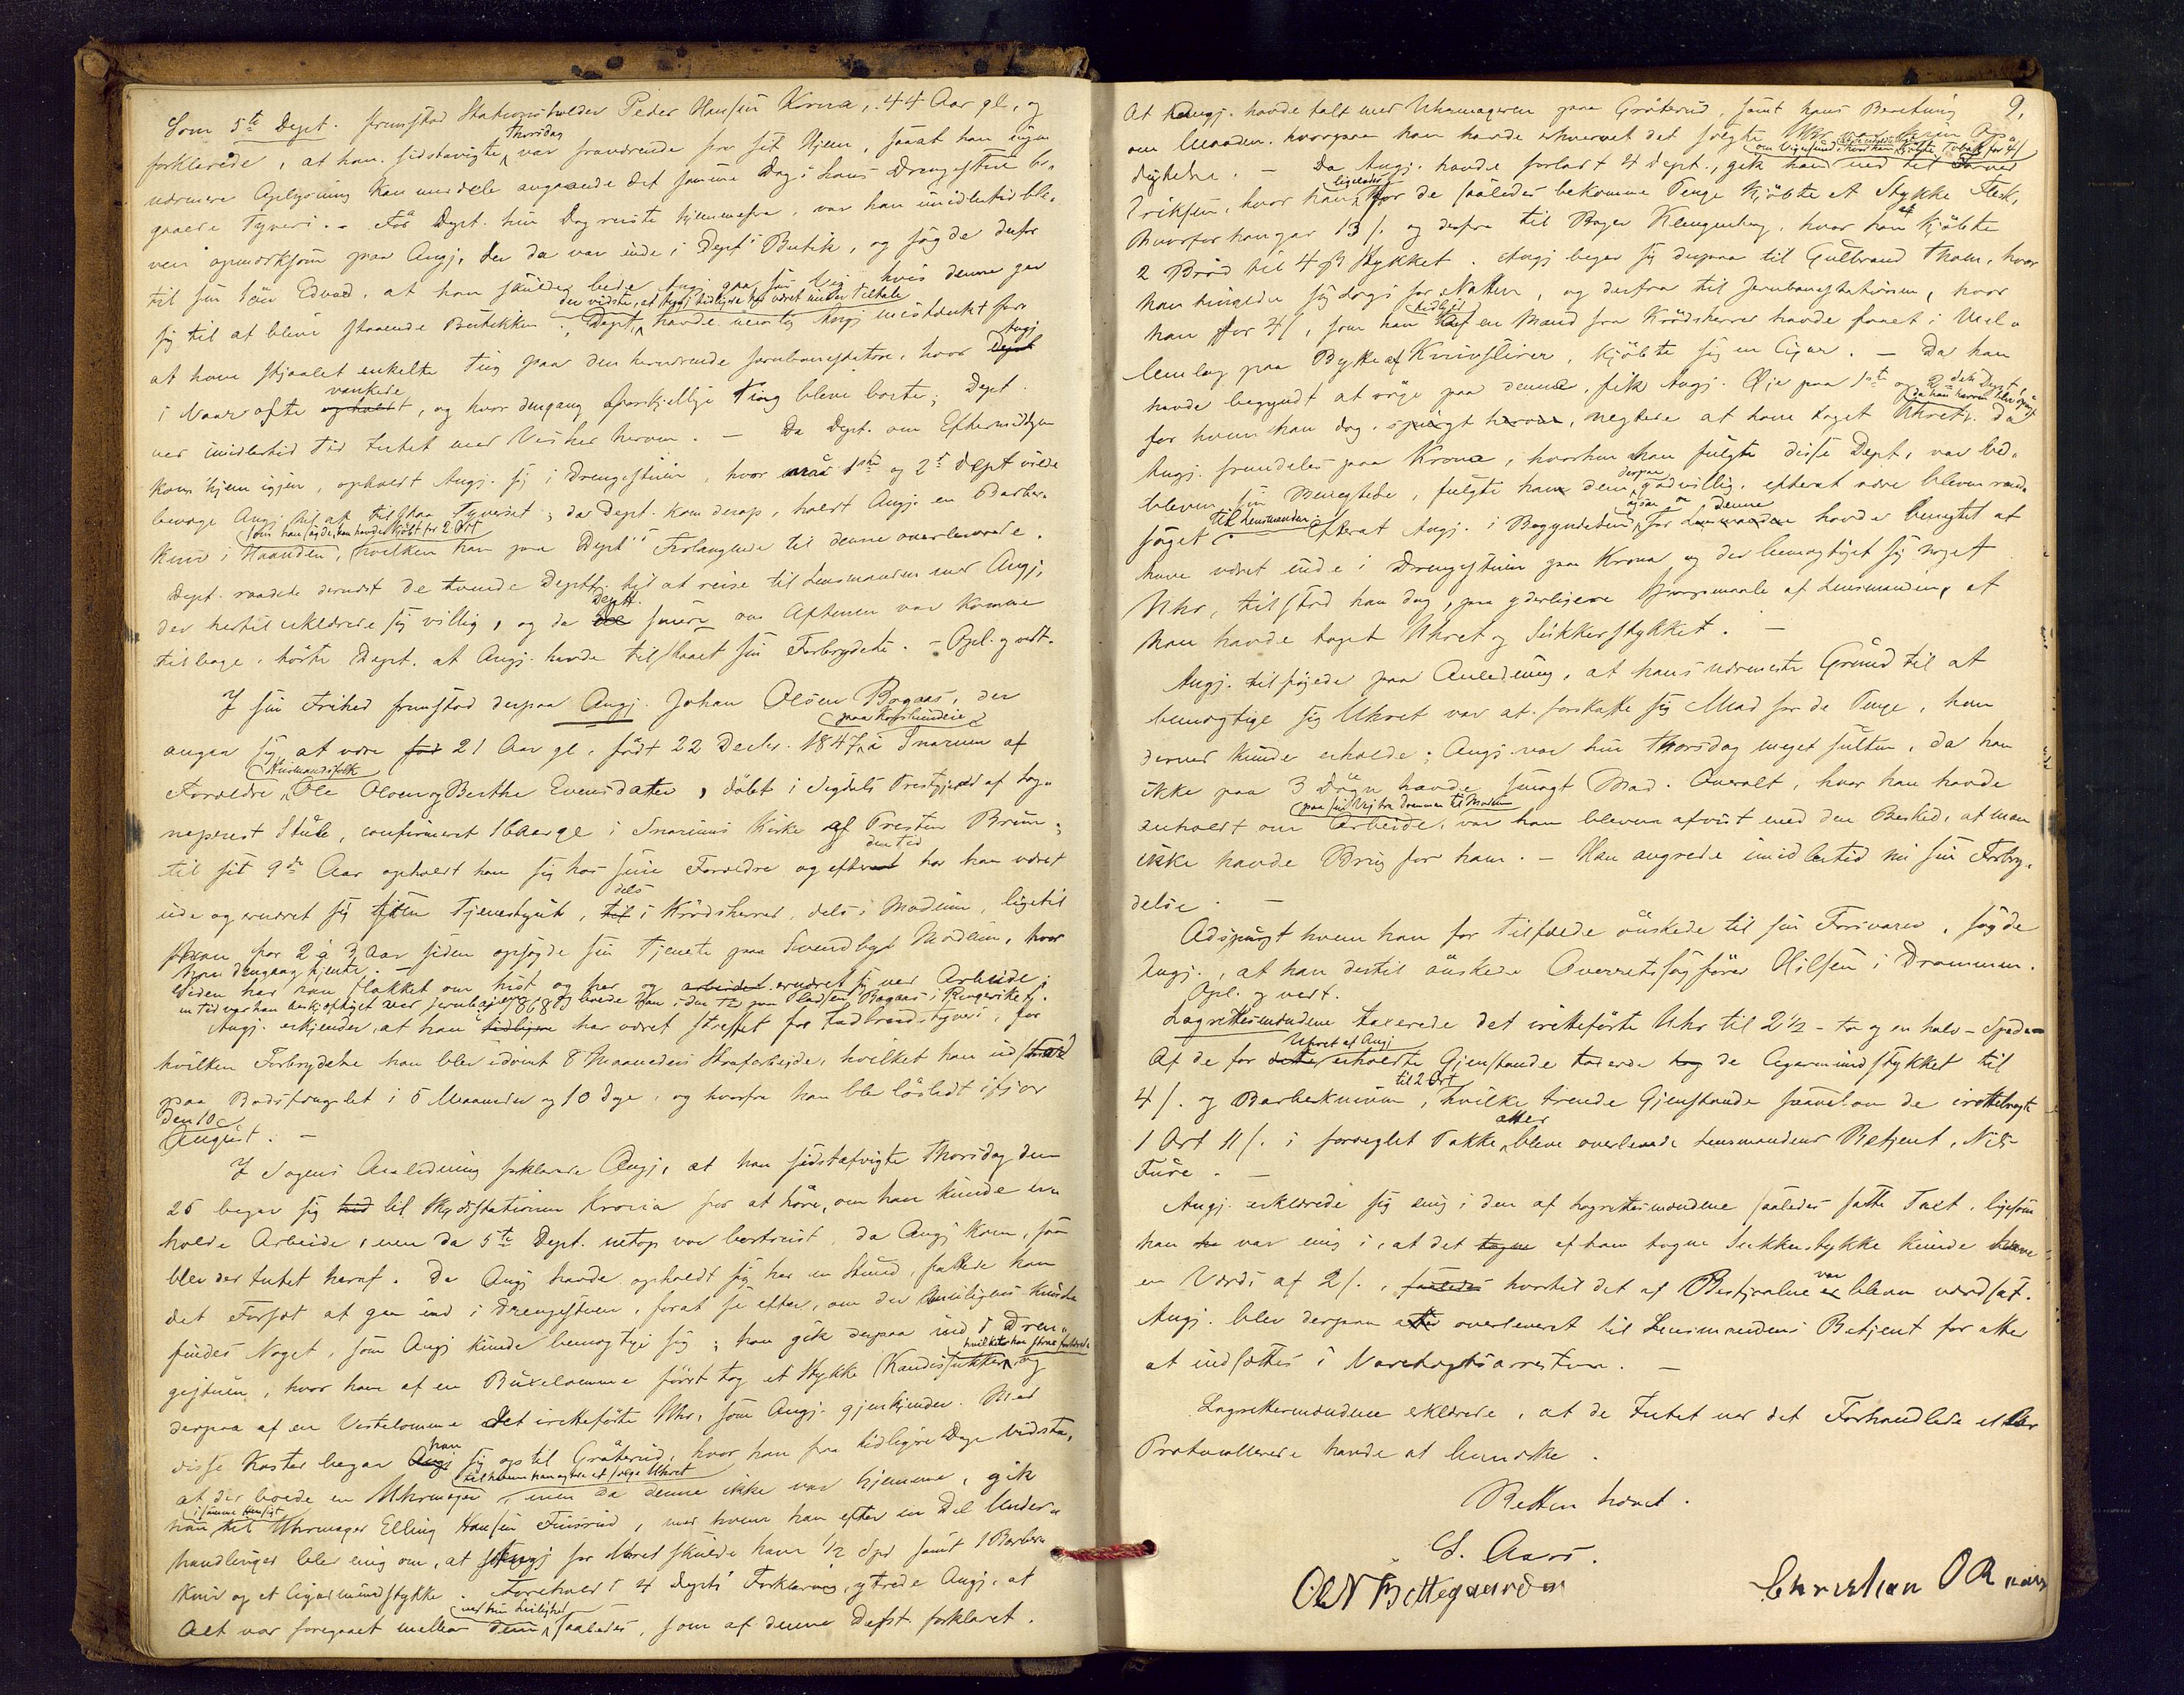 Som 5te Dept. fremstod Stationsholder Peder Hansen Krona, 44 Aar gl., og
Thorsdag
forklarede, at han sidstavigte var fraværende fra sit Hjem, saaat han ingen
nærmere Oplysning kan meddele angaaende det samme Dag i hans Drengestue be-
gaaede Tyveri. - Før Dept. hin Dag reiste hjemmefra, var han imidlertid ble-
ven opmærksom paa Angj., der da var inde i Depts Butik, og sagde derfor
til sin Søn Edvard, at han skulde bede Angj. gaa sin Vej hvis denne gav
der vidste, at Angj. tidligere har været under Tiltale
sig til at blive staaende i Butikken; Dept. havde nemlig Angj. mistænkt for
Angj
at have stjaalet enkelte Ting paa den herværende Jernbanestation, hvor Dept
vankede
i Vaar ofte opholdt, og hvor dengang forskjellige Ting bleve borte; Dept.
ved imidlertid Intet med Vished herom. - Da Dept. om Eftermiddagen
kom hjem igjen, opholdt Angj. sig i Drengestuen, hvor 1ste og 2det Dept vilde
bevæge Angj. til at tilstaa Tyveriet; da Dept. kom derop, holdt Angj. en Barber-
som han sagde, han havde kjøbt for 2 Ort
kniv i Haanden, hvilken han paa Depts Forlangende til denne overleverede.
Dept. raadede dernæst de tvende Deptt. til at reise til Lensmanden med Angj.,
Deptt.
der hertil erklærede sig villig, og da de senere om Aftenen var kommen
tilbage, hørte Dept. at Angj. havde tilstaaet sin Forbrydelse. - Opl. og vedt.
I sin Frihed fremstod derpaa Angj. Johan Olsen Bagaas, der
paa Kopslandeie
angav sig at være fød 21 Aar gl., født 22 Decbr. 1847 i Snarum af
Husmandsfolk
Forældre Ole Olsen og Berthe Evensdatter, døbt i Sigdals Prestegjeld af Sog-
neprest Stub, confirmeret 16 Aar gl. i Snarums Kirke af Presten Bruun;
den Tid
til sit 9de Aar opholdt han sig hos sine Forældre og efter har han været
dels
ude og ernæret sig som Tjenestegut, til i Krødsherred, dels i Modum, ligetil
han for 2 à 3 Aar siden opsagde sin Tjeneste paa Svendby i Modum, hvor
han dengang tjente. -
Siden har han flakket om hist og her og arbeidet ernæret sig ved Arbeide;
en Tid var han beskjæftiget ved Jernbane og boede han i den Tid paa Pladsen Bagaas i Ringerike.
Angj. erkjender, at han tidligere har været straffet for Indbrudstyveri, for
hvilken Forbrydelse han blev idømt 8 Maaneders Strafarbeide, hvilket han udstod
paa Bodsfængslet i 5 Maaneder og 10 Dage, og hvorfra han blev løsladt ifjor
den 10
August. -
I Sagens Anledning forklarede Angj., at han sidstafvigte Thorsdag den
25 begav sig hid til Skydsstationen Krona for at høre, om han kunde er-
holde Arbeide, men da 5te Dept. netop var bortreist, da Angj kom, saa
blev der Intet heraf. Da Angj havde opholdt sig her en Stund, fattede han
det Forsæt at gaa ind i Drengestuen, forat se efter, om der muligens kunde
findes Noget, som Angj kunde bemægtige sig; han gik derpaa ind i Dren-
hvilket han strax fortærede
gestuen, hvor han af en Buxelomme først tog et Stykke Kandissukker og
derpaa af en Vestelomme det irettelagte Uhr, som Angj. gjenkjender. Med
han
disse Koster begav Angj sig op til Gråterud, hvor han fra tidligere Dage vidste,
til hvem han agtede at sælge Uhret
at der boede en Uhrmager, men da denne ikke var hjemme, gik
i samme Hensigt
han til Uhrmager Elling Hansen Fuurud, med hvem han efter en Del Under-
handlinger blev enig om, at Angj for Uhret skulde have 1/2 Spd samt 1 Barber-
kniv og et Cigarmundstykke. Foreholdt 4 Depts Forklaring, ytrede Angj., at
ved hin Leilighed
Alt var foregaaet mellem dem saaledes, som af denne Dept. forklaret.
9.
At Angj. havde talt med Uhrmageren paa Gråterud, samt hans Beretning
om Maaden, hvorpaa han havde erhvervet det solgte Uhr
digtede. - Da Angj. havde forladt 4 Dept., gik han ned til
ligeledes
Eriksen, hvor han for de saaledes bekomne Penge kjøbte et Stykke Flesk,
hvorfor han gav 13 ſ. og derfra til Bager Klengenberg, hvor han kjøbte
2 Brød til 4 ſ Stykket. Angj begav sig derpaa til Gulbrand Thom, hvor
han tingede sig Logi for Natten, og derfra til Jernbanestationen, hvor
tidligere
han for 4 ſ, som han af en Mand fra Krødsherred havde faaet i Mel-
lemlag paa Bytte af Knivslirer, kjøbte sig en Cigar. - Da han
havde begyndt at røge paa denne, fik Angj. Øie paa 1ste og 2den Dept,
for hvem han dog, spurgt herom, negtede at have taget Uhret; da
Angj. fremdeles paa Krona, hvorhen han fulgte disse Dept, var ved-
derpaa
bleven sin Benegtelse, fulgte han dem godvillig, efterat være bleven und-
til Lensmanden
søget. Efterat Angj. i Begyndelsen ogsaa for denne havde benegtet at
have været inde i Drengestuen paa Krona og der bemægtiget sig noget
Uhr, tilstod han dog, paa yderligere Spørgsmaale af Lensmanden, at
han havde taget Uhret og Sukkerstykket. -
Angj. tilføjede paa Anledning, at hans nærmeste Grund til at
bemægtige sig Uhret var at forskaffe sig Mad for de Penge, han
derved kunde erholde; Angj. var hin Thorsdag meget sulten, da han
ikke paa 3 Døgn havde smagt Mad. Overalt, hvor han havde
paa sin Vej fra Drammen til Modum
anholdt om Arbeide, var han bleven afvist med den Besked, at man
ikke havde Brug for ham. - Han angrede imidlertid nu sin Forbry-
delse. -
Adspurgt hvem han for Tilfælde ønskede til sin Forsvarer, sagde
Angj., at han dertil ønskede Overretssagfører Hilsen i Drammen.
Opl. og vedt.
Lagrettesmændene taxerede det irettelagte Uhr til 2 1/2 - to og en halv - Spd.
Uhret af Angj
Af de for dette erholdte Gjenstande taxerede de Cigarmundstykket til
til 2 Ort
4 ſ. og Barberkniven, hvilke tvende Gjenstande saavelsom de irettelagte
atter
1 Ort 11 ſ. i forseglet Pakke bleve overleverede Lensmandens Betjent, Nils
Fure. -
Angj. erklærede sig enig i den af Lagrettesmændene saaledes satte Taxt, ligesom
han var enig i, at det tagne af ham tagne Sukkerstykke kunde have
en Værdi af 2 ſ., saaledes hvortil det af Bestjaalne var bleven værdsat.
Angj. blev derpaa overleveret til Lensmandens Betjent for atter
at indsættes i Varetægtsarresten. -
Lagrettesmændene erklærede, at de Intet ved det Forhandlede eller
Protocollerede havde at bemærke.
Retten hævet.
S. Aars.
Ole N Bottegaarden
Christian O